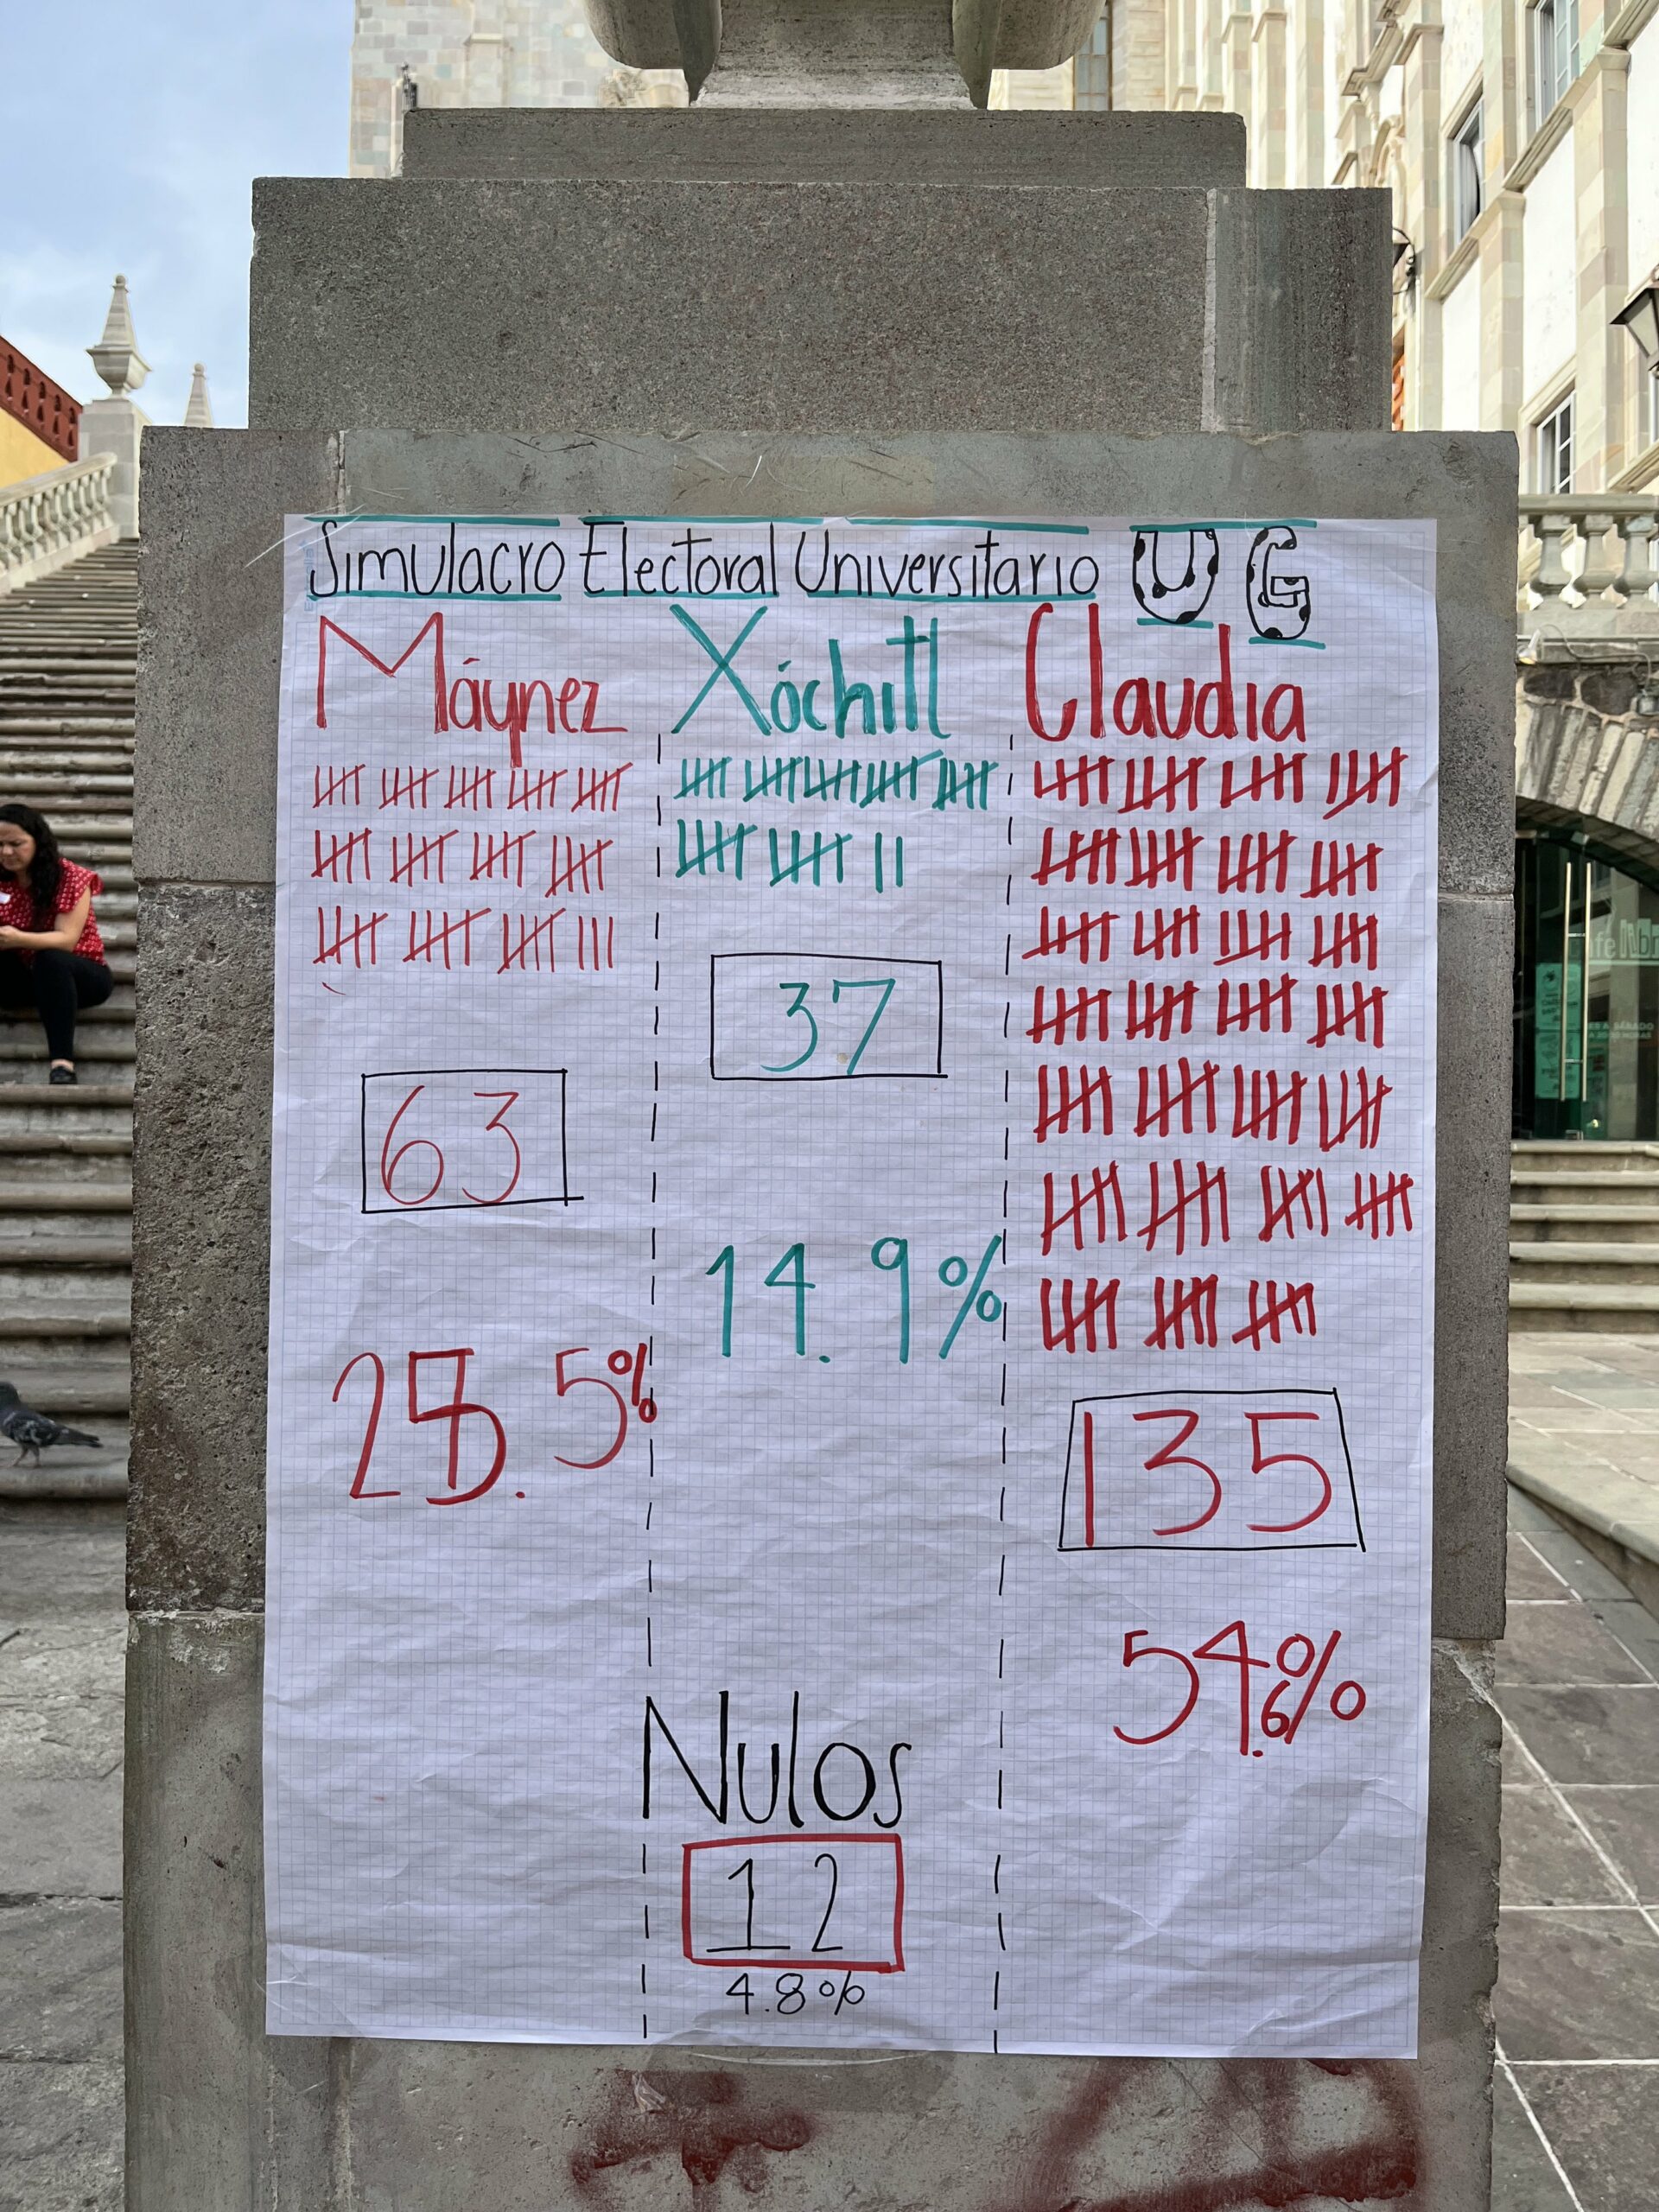 Simulacro Electoral Universitario UG
Máynez Xóchitl Claudia
37
63
14.9%
25.5%
135
54.6%
Nulos
12
4.8%